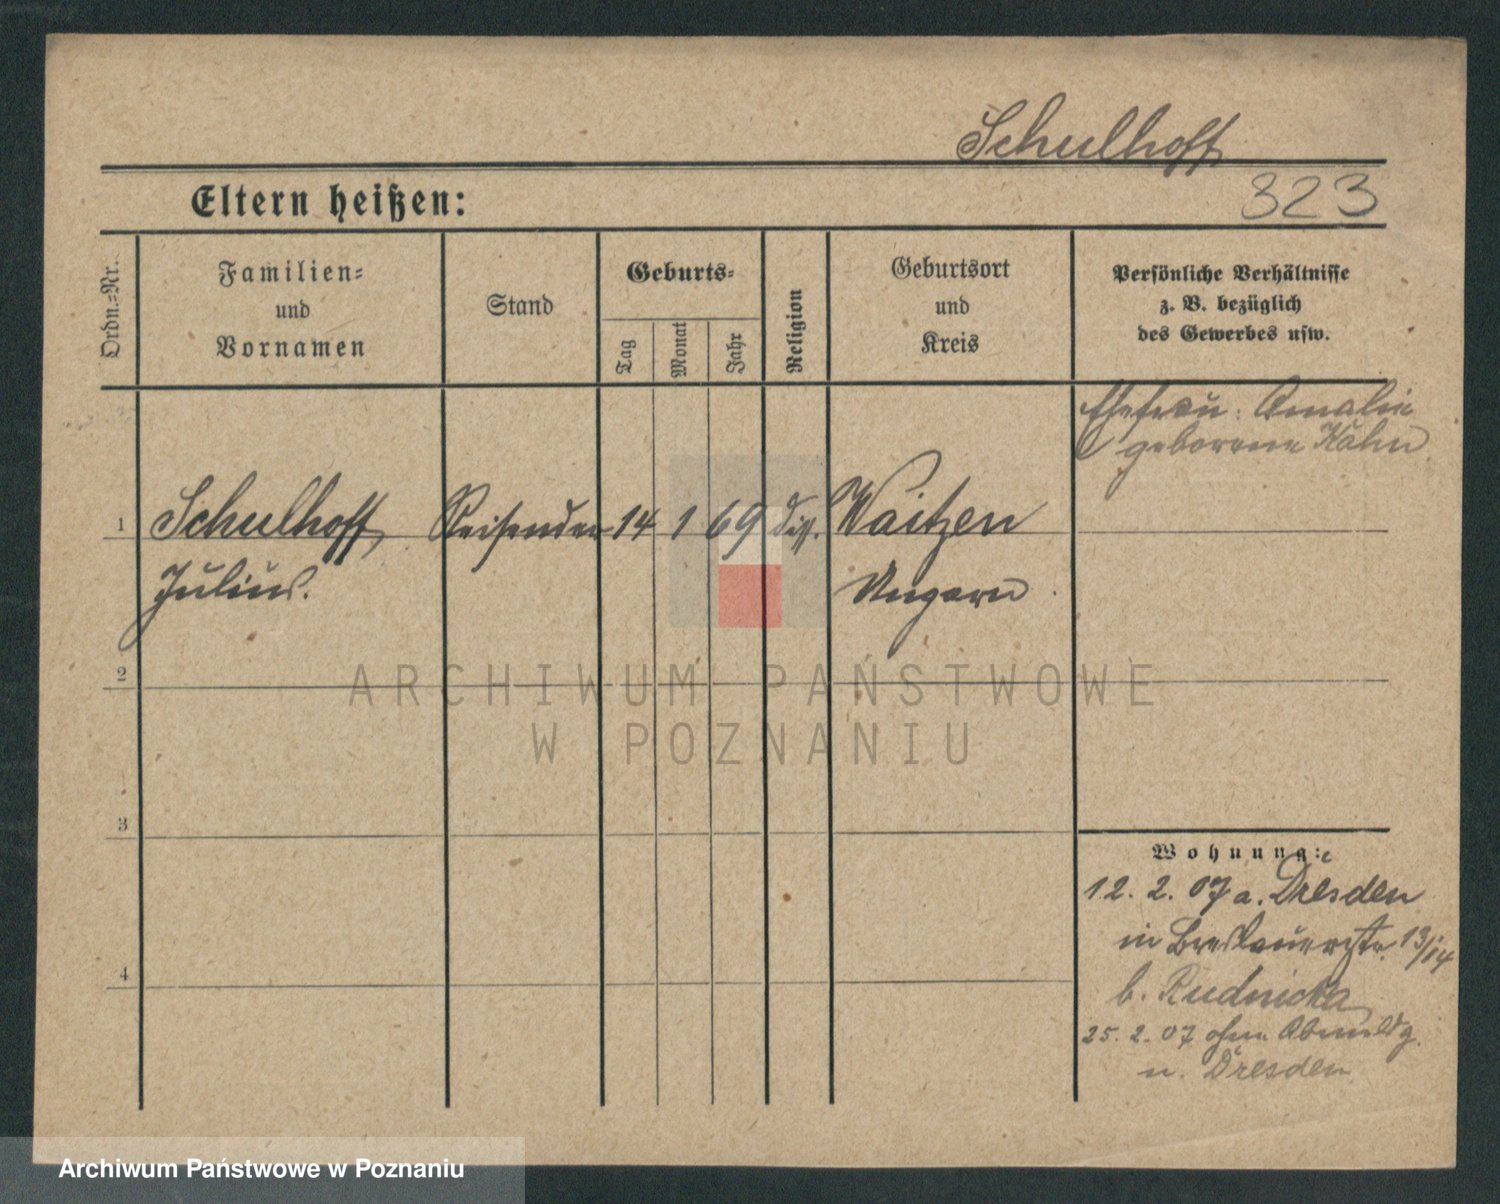 Schulhoff
Eltern heißen:
323
Ordn.-Nr.
Familien-
und
Vornamen
Stand
Geburts-
Tag
Monat
Jahr
Religion
Geburtsort
und
Kreis
Persönliche Verhältnisse
z. B. bezüglich
des Gewerbes usw.
Ehefrau: Amalie
geborene Kahn
1
Schulhoff Reisender 14 1 69 diss. Waitzen
Julius. Ungarn
2
ARCHIWUM PAŃSTWOWE
W POZNANIU
3
Wohnung:
12. 2. 07 a. Dresden
in Breslauerstr. 13/14
b. Rudnicka
4
25. 2. 07 ohne Abmeldg.
n. Dresden
Archiwum Państwowe w Poznaniu